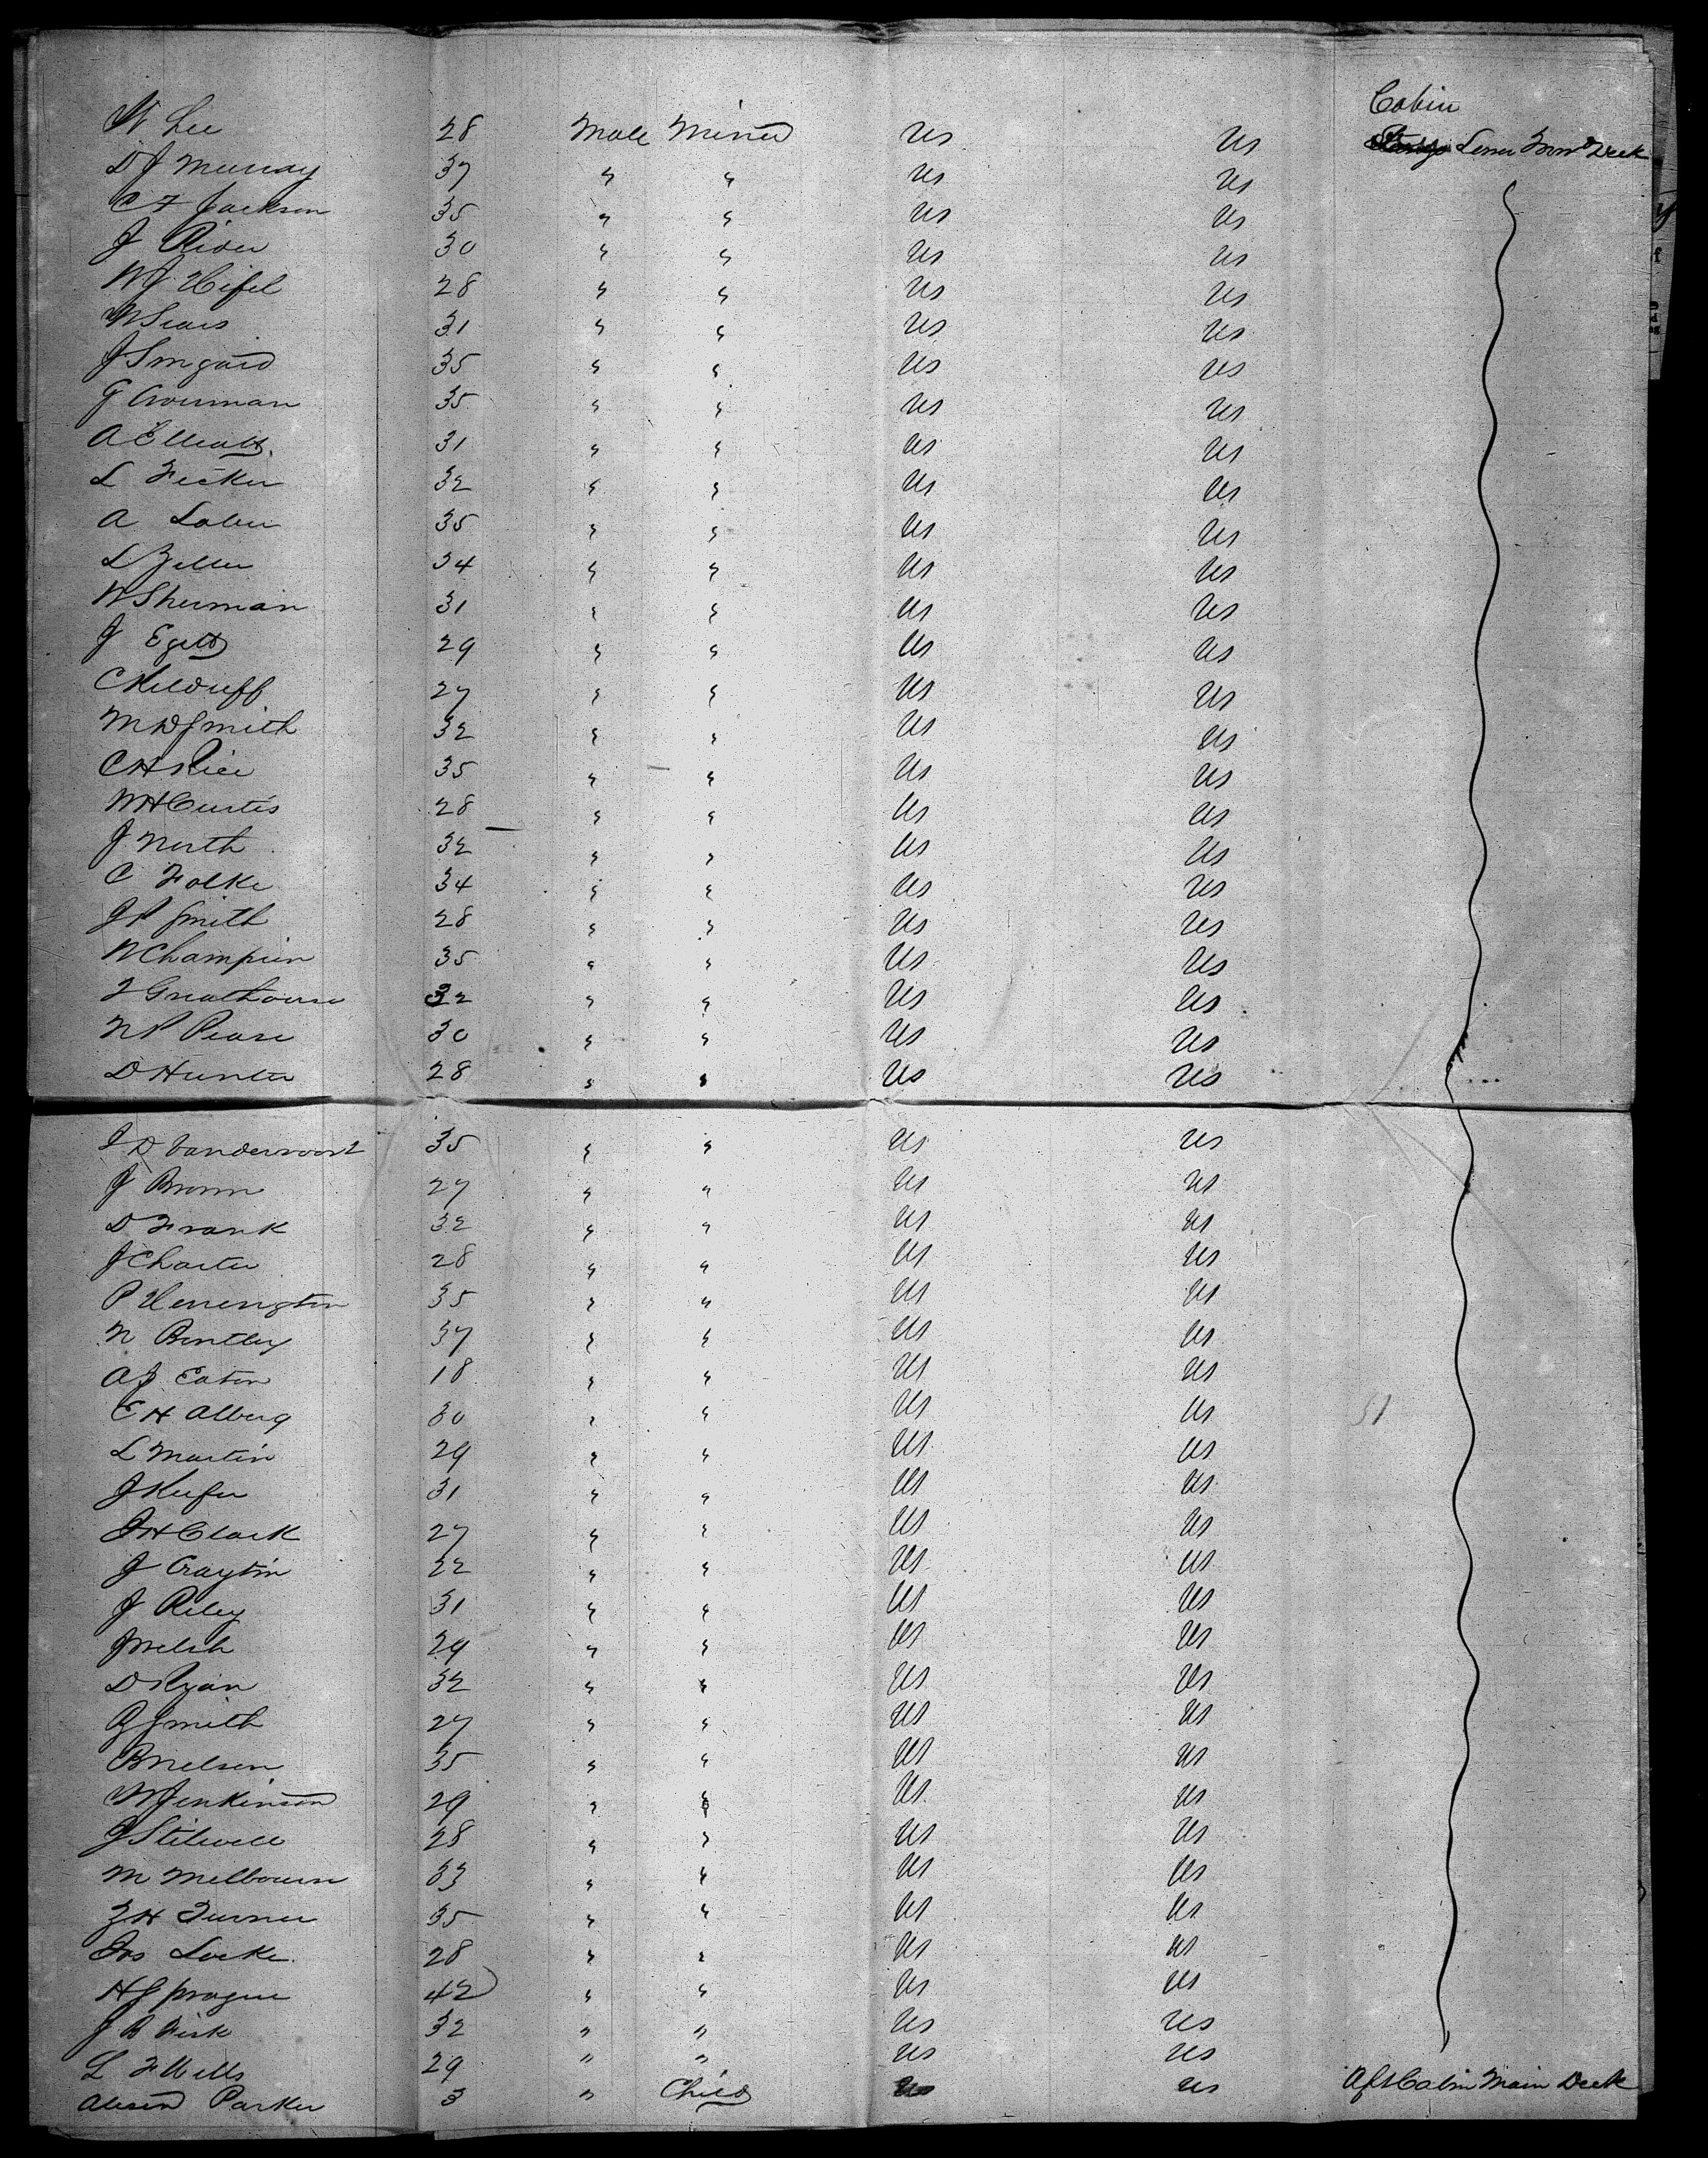 Cabin
W Lee 28 Male Miner US US Lower Forwd Deck
D J Murray 37 " " US US
C F Jackson 35 " " US US
J Rider 30 " " US US
W J Hifel 28 " " US US
W Sears 31 " " US US
J Smgard 35 " " US US
G Crowman 35 " " US US
A Elliott 31 " " US US
L Feeker 32 " " US US
A Laber 35 " " US US
L Zeller 34 " " US US
W Sherman 31 " " US US
J Egett 29 " " US US
C Kilduff 27 " " US US
M D Smith 32 " " US US
C H Rice 35 " " US US
W H Curtis 28 " " US US
J North 32 " " US US
C Folke 34 " " US US
J P Smith 28 " " US US
W Champion 35 " " US US
T Greathouse 32 " " US US
N P Pease 30 " " US US
D Hunter 28 " " US US
J D Vandervoort 35 " " US US
J Brown 27 " " US US
D Frank 32 " " US US
J Charter 28 " " US US
P Herrington 35 " " US US
N Bentley 37 " " US US
A J Eaton 18 " " US US
E H Alberg 30 " " US US
L Martin 29 " " US US
J Keefer 31 " " US US
J H Clark 27 " " US US
J Crayton 22 " " US US
J Riley 31 " " US US
J Welsh 29 " " US US
D Ryan 32 " " US US
B Smith 27 " " US US
B Nelson 35 " " US US
W Jenkinson 29 " " US US
J Stilwell 28 " " US US
M Melbourn 33 " " US US
Z H Turner 35 " " US US
Jos Locke 28 " " US US
H Sprague 42 " " US US
J B Fisk 32 " " US US
L F Wells 29 " " US US
Parker 3 " Child US US Aft Cabin Main Deck